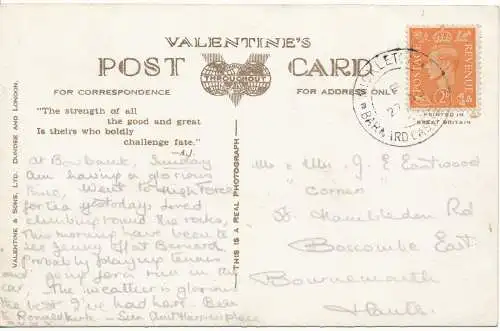 VALENTINE'S
POST CARD
THROUGHOUT
FOR CORRESPONDENCE
FOR ADDRESS ONLY
PRINTED IN
GREAT BRITAIN
POSTAGE
REVENUE
BARNARD CASTLE
27
"The strength of all
the good and great
Is theirs who boldly
challenge fate."
—A.J.
VALENTINE & SONS, LTD. DUNDEE AND LONDON.
THIS IS A REAL PHOTOGRAPH
at Bowbank, Sunday
Am having a glorious
time, Went to High Force
for tea yesterday. Loved
climbing round the rocks,
This morning have been to
see Jenny off at Barnard
Probably playing tennis
and going for a run in the
car, The weather is glorious
the best I've had here. Been
to Romaldkirk - Seen Aunt Harriet's place
Mr & Mrs J. E Eastwood
"Corner"
St. Hambledon Rd
Boscombe East
Bournemouth
Hants.